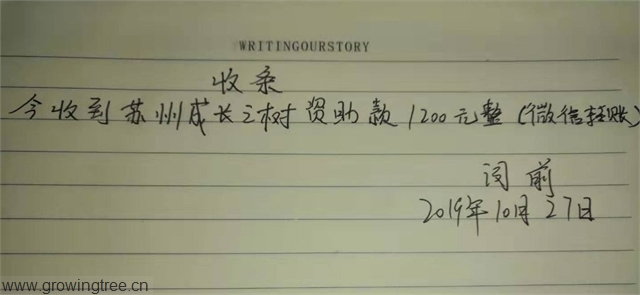 WRITINGOURSTORY
收条
今收到苏州成长之树资助款1200元整(微信转账)
闵前
2019年10月27日
www.growingtree.cn